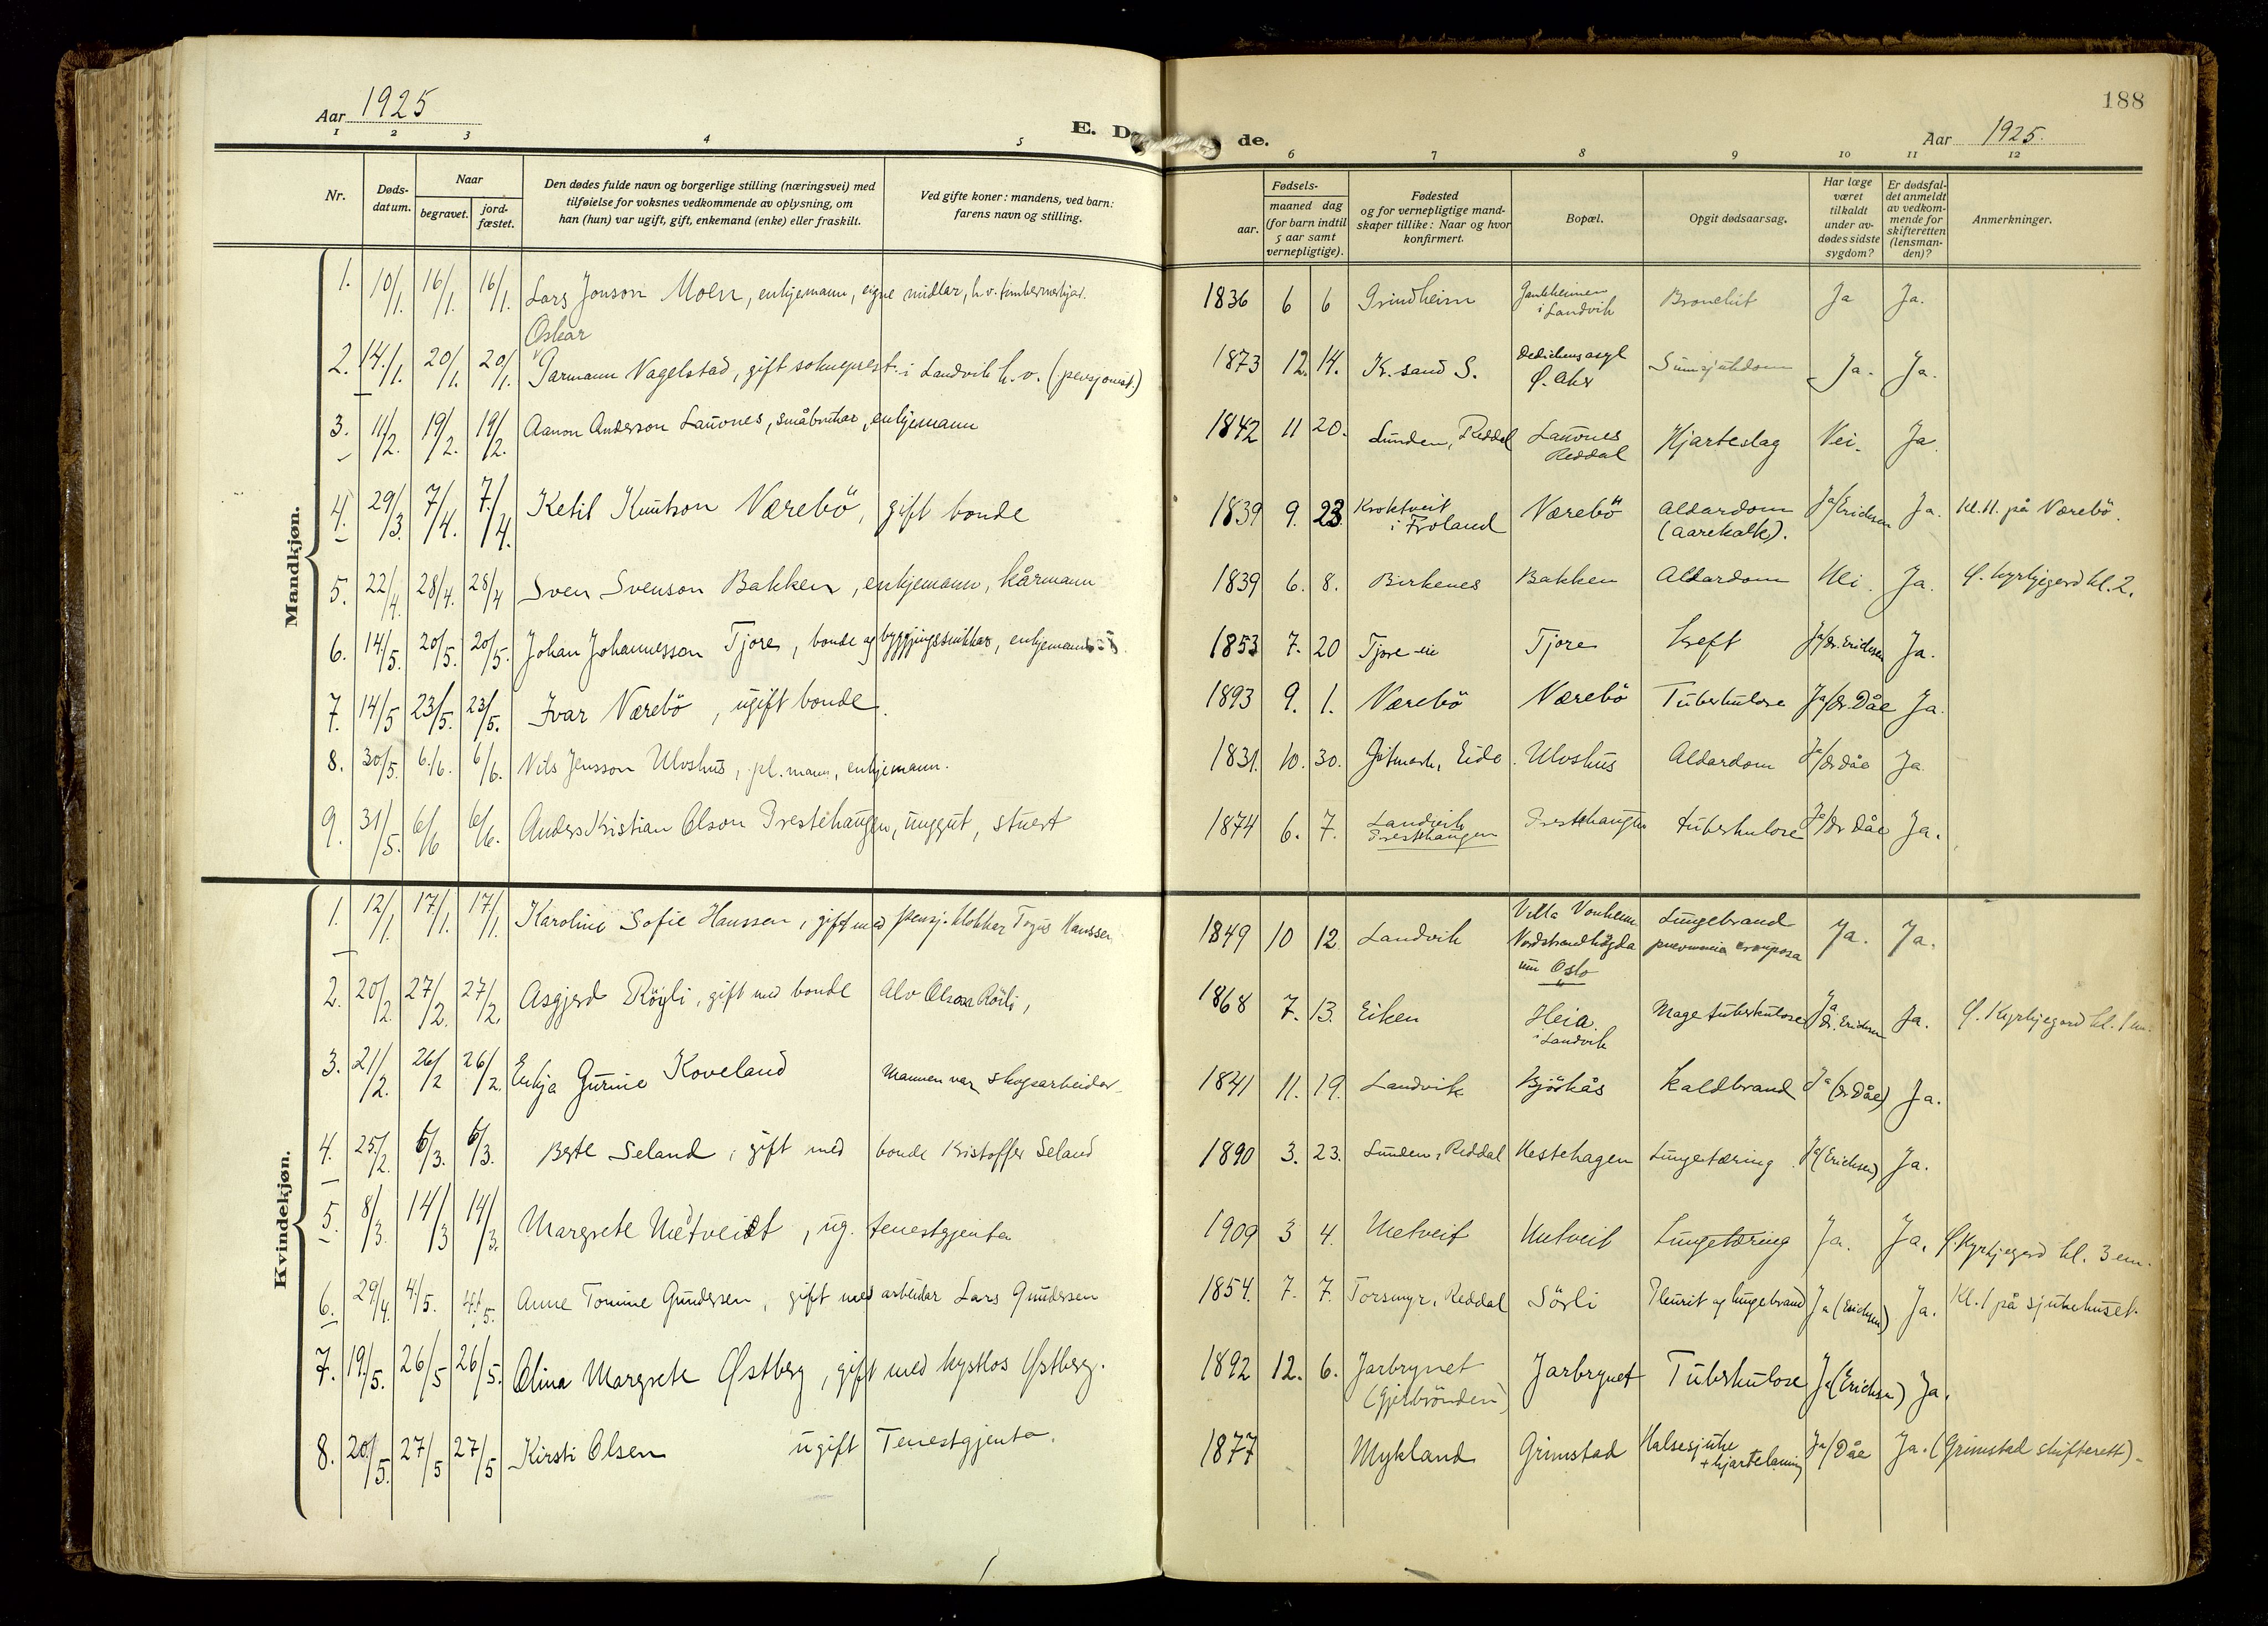 188
Aar 1925
E. D de.
Aar 1925.
1 2 3 4 5 6 7 8 9 10 11 12
Nr.
Døds-
datum.
Naar
begravet.
jord-
fæstet.
Den dødes fulde navn og borgerlige stilling (næringsvei) med
tilføielse for voksnes vedkommende av oplysning, om
han (hun) var ugift, gift, enkemand (enke) eller fraskilt.
Ved gifte koner: mandens, ved barn:
farens navn og stilling.
Fødsels-
aar.
maaned dag
(for barn indtil
5 aar samt
vernepligtige).
Fødested
og for vernepligtige mand-
skaper tillike: Naar og hvor
konfirmert.
Bopæl.
Opgit dødsaarsag.
Har læge
været
tilkaldt
under av-
dødes sidste
sygdom?
Er dødsfal-
det anmeldt
av vedkom-
mende for
skifteretten
(lensman-
den)?
Anmerkninger.
Mandkjøn.
1. 10/1. 16/1. 16/1. Lars Jonson Moen, enkjemann, eigne midlar, h.v. 1836 6 6 Grindheim i Landvik Bronchit Ja Ja.
Oskar
2. 14./1. 20/1. 20/1. Garmann Nagelstad, gift sokneprest i Landvik h. v. (pensjonist) 1873 12. 14. K. sand S. Dedichens asyl Ø. Aker Sinnsjukdom Ja. Ja.
3. 11/2. 19/2. 19/2. Aanon Anderson Lauvnes, småbrukar, enkjemann 1842 11 20. Lunden, Reddal Lauvnes Reddal Hjarteslag Nei. Ja.
4. 29/3. 7/4. 7/4. Ketil KnutsonVærebö, gift bonde 1839 9. 23 i Froland Værebö Aldardom (aarekalk). Ja/Erichsen Ja. Kl. 11. på Værebö.
5. 22/4. 28/4. 28/4 Sven Svenson Bakken, enkjemann, kårmann 1839 6. 8. Birkenes Bakken Aldardom Nei. Ja. Ø. kyrkjegard kl. 2.
6. 14/5. 20/5. 20/5. Johan Johannesson Tjore, bonde og byggjingssnikkar, enkjemann 1853 7. 20 Tjore Tjore Kreft Ja/dr. Erichsen Ja.
7. 14/5 23/5. 23/5. Ivar Værebö, ugift bonde. 1893 9. 1. Værebö Værebö Tuberkulose Ja/dr. Dåe Ja.
8. 30/5. 6/6. 6/6. Nils Jensson Ulvshus, pl. mann, enkjemann. 1831. 10. 30. Gitmark, Eide Ulvshus Aldardom Ja/dr Dåe Ja.
9. 31/5. 6/6 6/6. Anders Kristian Olson Prestehaugen, unggut, stuert 1874 6. 7. Landvik Prestehaugen Prestehaugen tuberkulose Ja/dr Dåe Ja.
Kvindekjøn.
1. 12/1. 17/1. 17/1. Karoline Sofie Hanssen, gift med pensj. klokkar Hanssen 1849 10 12. Landvik Villa Vonheim Nordstrandhögda um Oslo Lungebrand pneumonia crouposa Ja. Ja.
2. 20/2. 27/2. 27/2. Asgjerd Röyli, gift med bonde Alv Olsson Röili, 1868 7. 13. Eiken Heia i Landvik Mage tuberkulose Ja dr. Erichsen Ja. Ø. Kyrkjegard kl. 1
3. 21/2. 26/2 26/2. Enkja Gurine Koveland Mannen var skogsarbeidar 1841 11. 19. Landvik Björkås Kaldbrand Ja (dr Dåe) Ja.
4. 25/2. 6/3. 6/3. Berte Seland, gift med bonde Kristoffer Seland 1890 3. 23. Lunden, Reddal Hestehagen Lungetæring Ja (Erichsen) Ja.
5. 8/3. 14/3 14/3. Margrete ug. tenestgjenta 1909 3 4. Lungetæring Ja. Ja. Ø. Kyrkjegard kl. 3 em.
6. 29/4. 4/5. 4/5. Anne Tomine Gundersen, gift med arbeidar Lars Gundersen 1854. 7. 7. Torsmyr, Reddal Sörli Pleurit og lungebrand Ja (Erichsen) Ja. Kl. 1 på sjukehuset.
7. 19/5. 26/5 26/5. Olina Margrete Østberg, gift med Østberg. 1892 12. 6. Jarbrynet Jarbrynet Tuberkulose Ja (Erichsen) Ja.
8. 20/5. 27/5 27/5 Kirsti Olsen ugift Tenestgjenta. 1877 Mykland Grimstad Halsesjuke + hjartelaming Ja/Dåe Ja. (Grimstad skifterett).